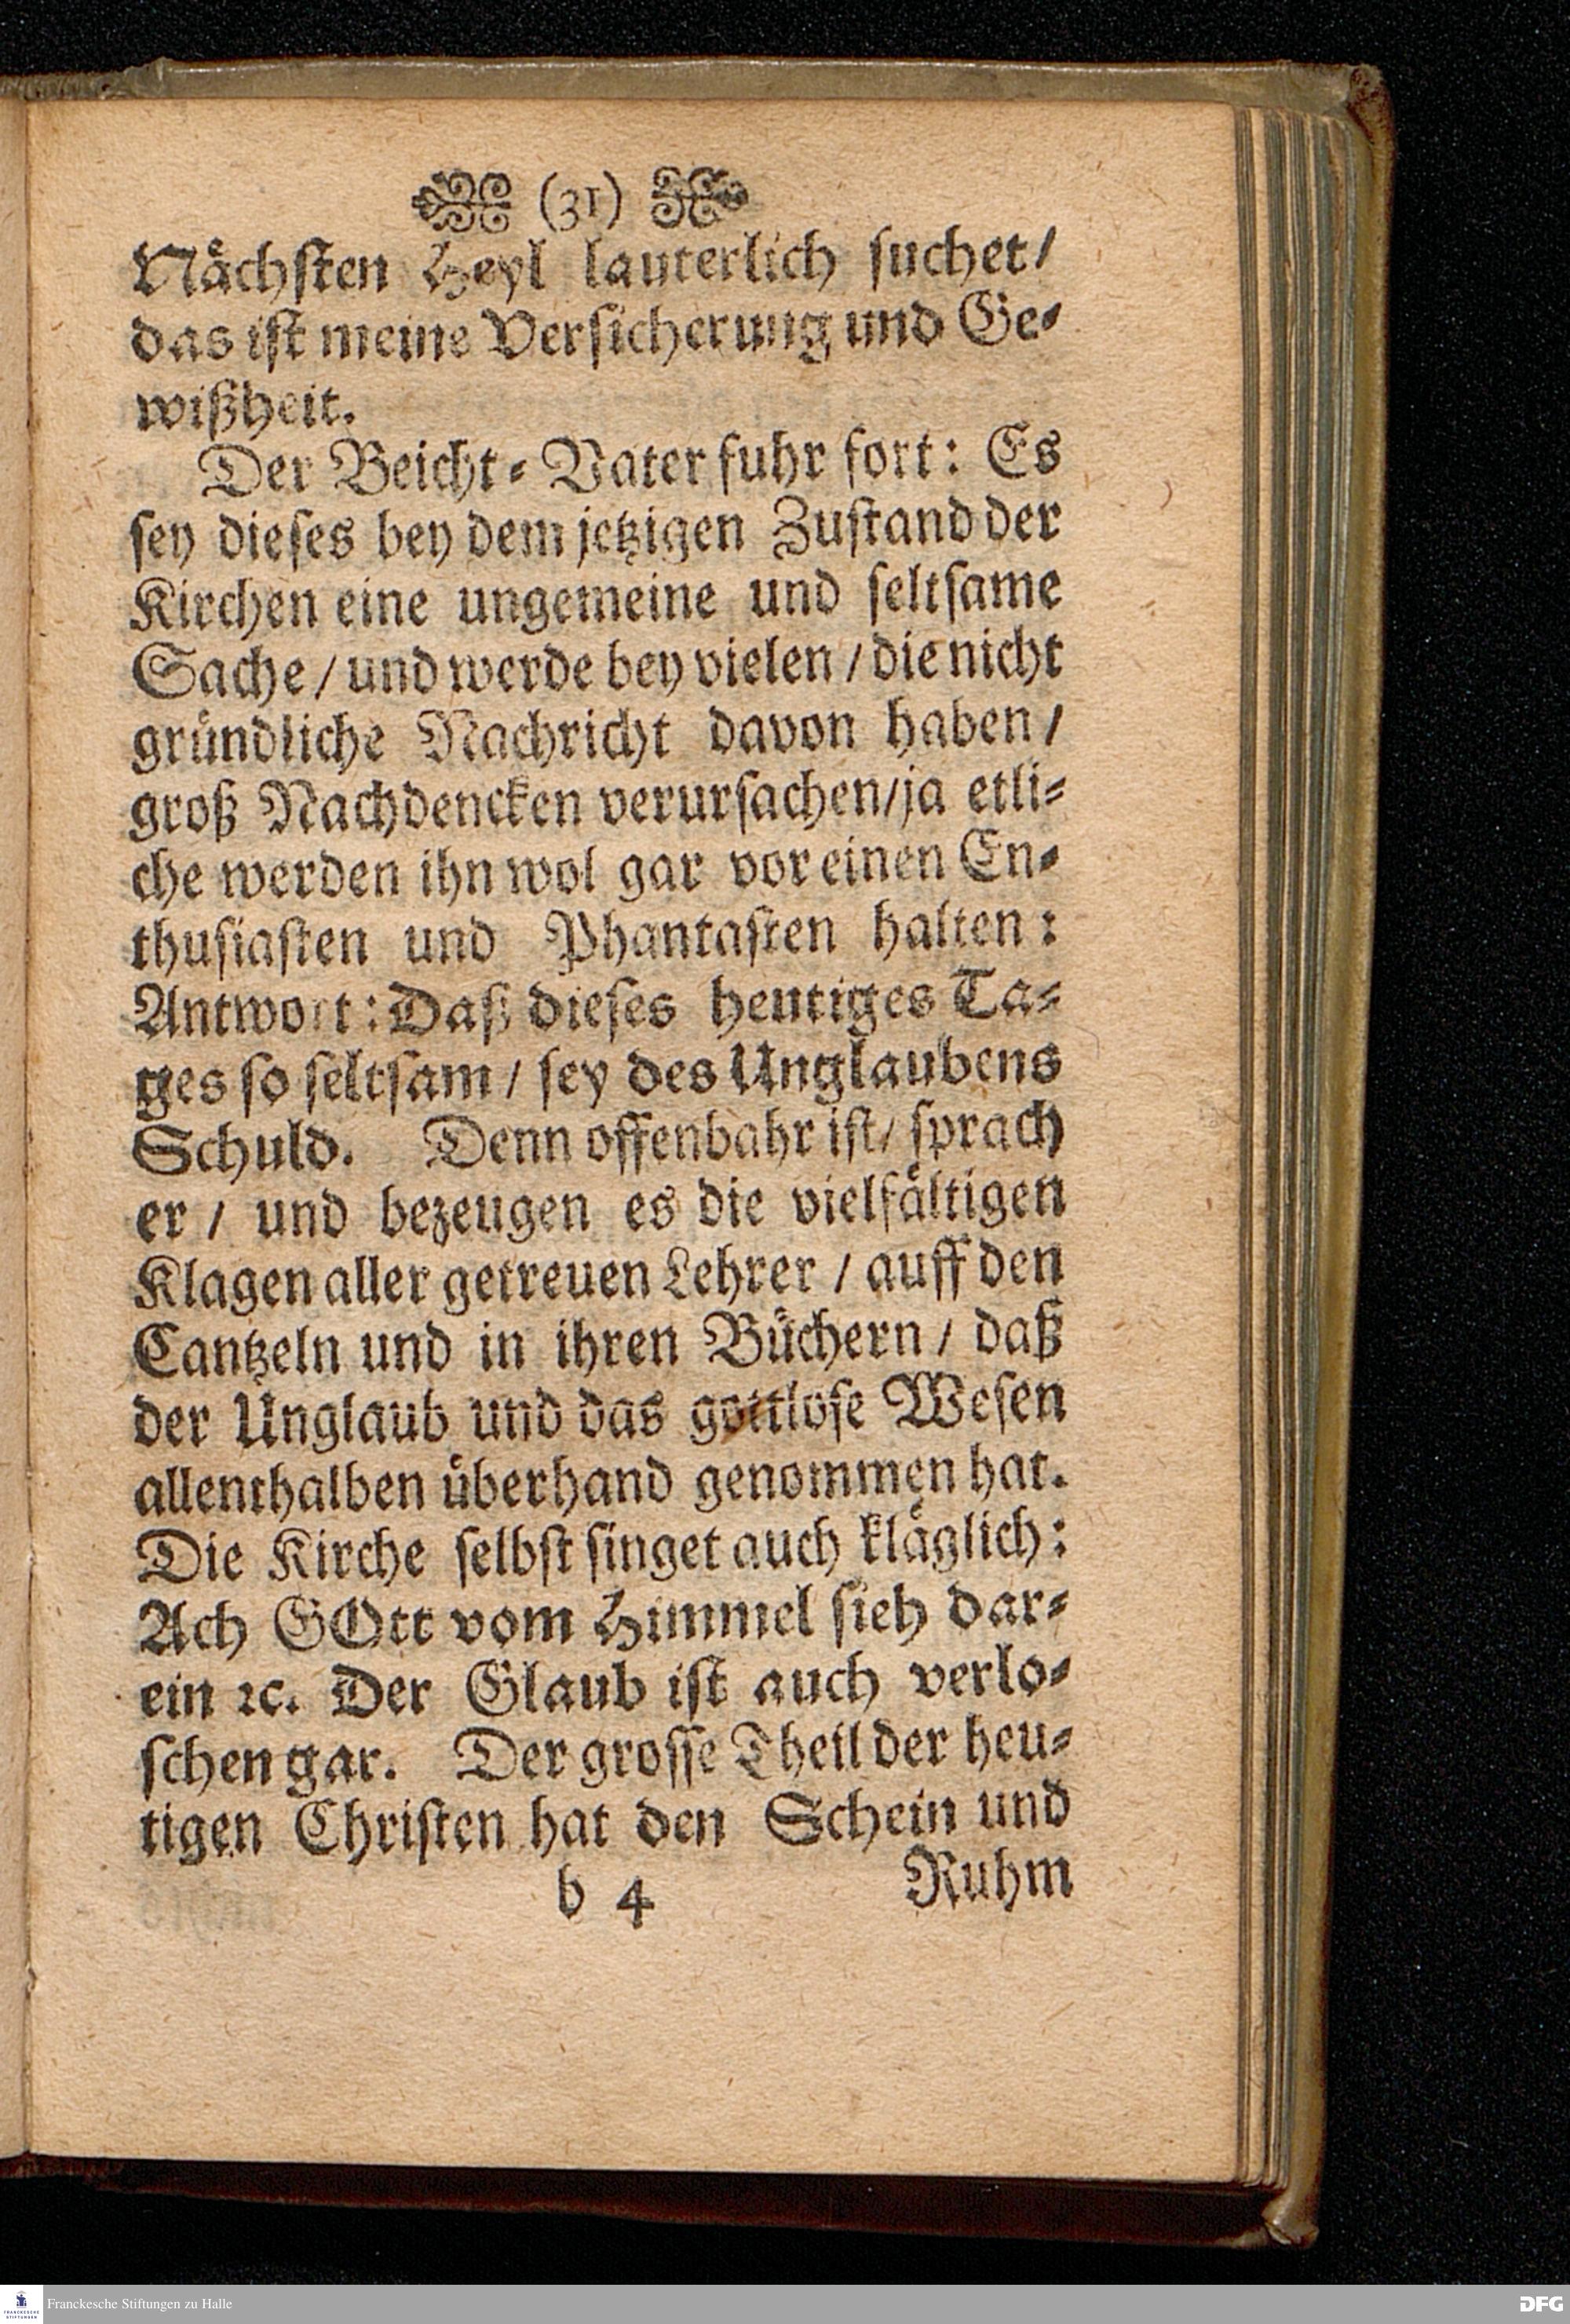 (31)
Nächsten Heyl lauterlich suchet/
das ist meine Versicherung und Ge-
wißheit.
Der Beicht-Vater fuhr fort: Es
sey dieses bey dem jetzigen Zustand der
Kirchen eine ungemeine und seltsame
Sache/ und werde bey vielen/ die nicht
gründliche Nachricht davon haben/
groß Nachdencken verursachen/ja etli-
che werden ihn wol gar vor einen En-
thusiasten und Phantasten halten:
Antwort: Daß dieses heutiges Ta-
ges so seltsam/ sey des Unglaubens
Schuld. Denn offenbahr ist/ sprach
er/ und bezeugen es die vielfältigen
Klagen aller getreuen Lehrer/ auff den
Cantzeln und in ihren Büchern/ daß
der Unglaub und das gottlose Wesen
allenthalben überhand genommen hat.
Die Kirche selbst singet auch kläglich:
Ach GOtt vom Himmel sieh dar-
ein ꝛc. Der Glaub ist auch verlo-
schen gar. Der grosse Theil der heu-
tigen Christen hat den Schein und
b 4 Ruhm
FRANCKESCHE STIFTUNGEN
Franckesche Stiftungen zu Halle
DFG